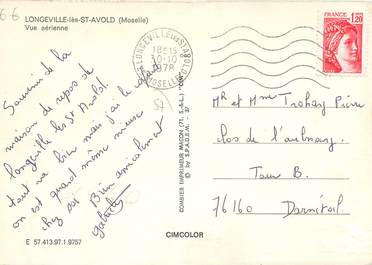 66
LONGEVILLE-lès-ST-AVOLD (Moselle)
Vue aérienne
LONGEVILLE LES ST AVOLD
18H15
30-10
1978
MOSELLE
FRANCE
1,20
Souvenir de la
maison de repos de
Longeville les St Avold
tout va bien mais j'ai le cafard
on est quand même mieux
chez soi Bien amicalement
COMBIER IMPRIMEUR MACON (71, S.-&-L.) "CIM"
© by S.P.A.D.E.M. - 37
Mr et Mme Pierre
Clos de l'aubnay
Tour B.
76160 Darnétal
CIMCOLOR
E 57.413.97.1.9757